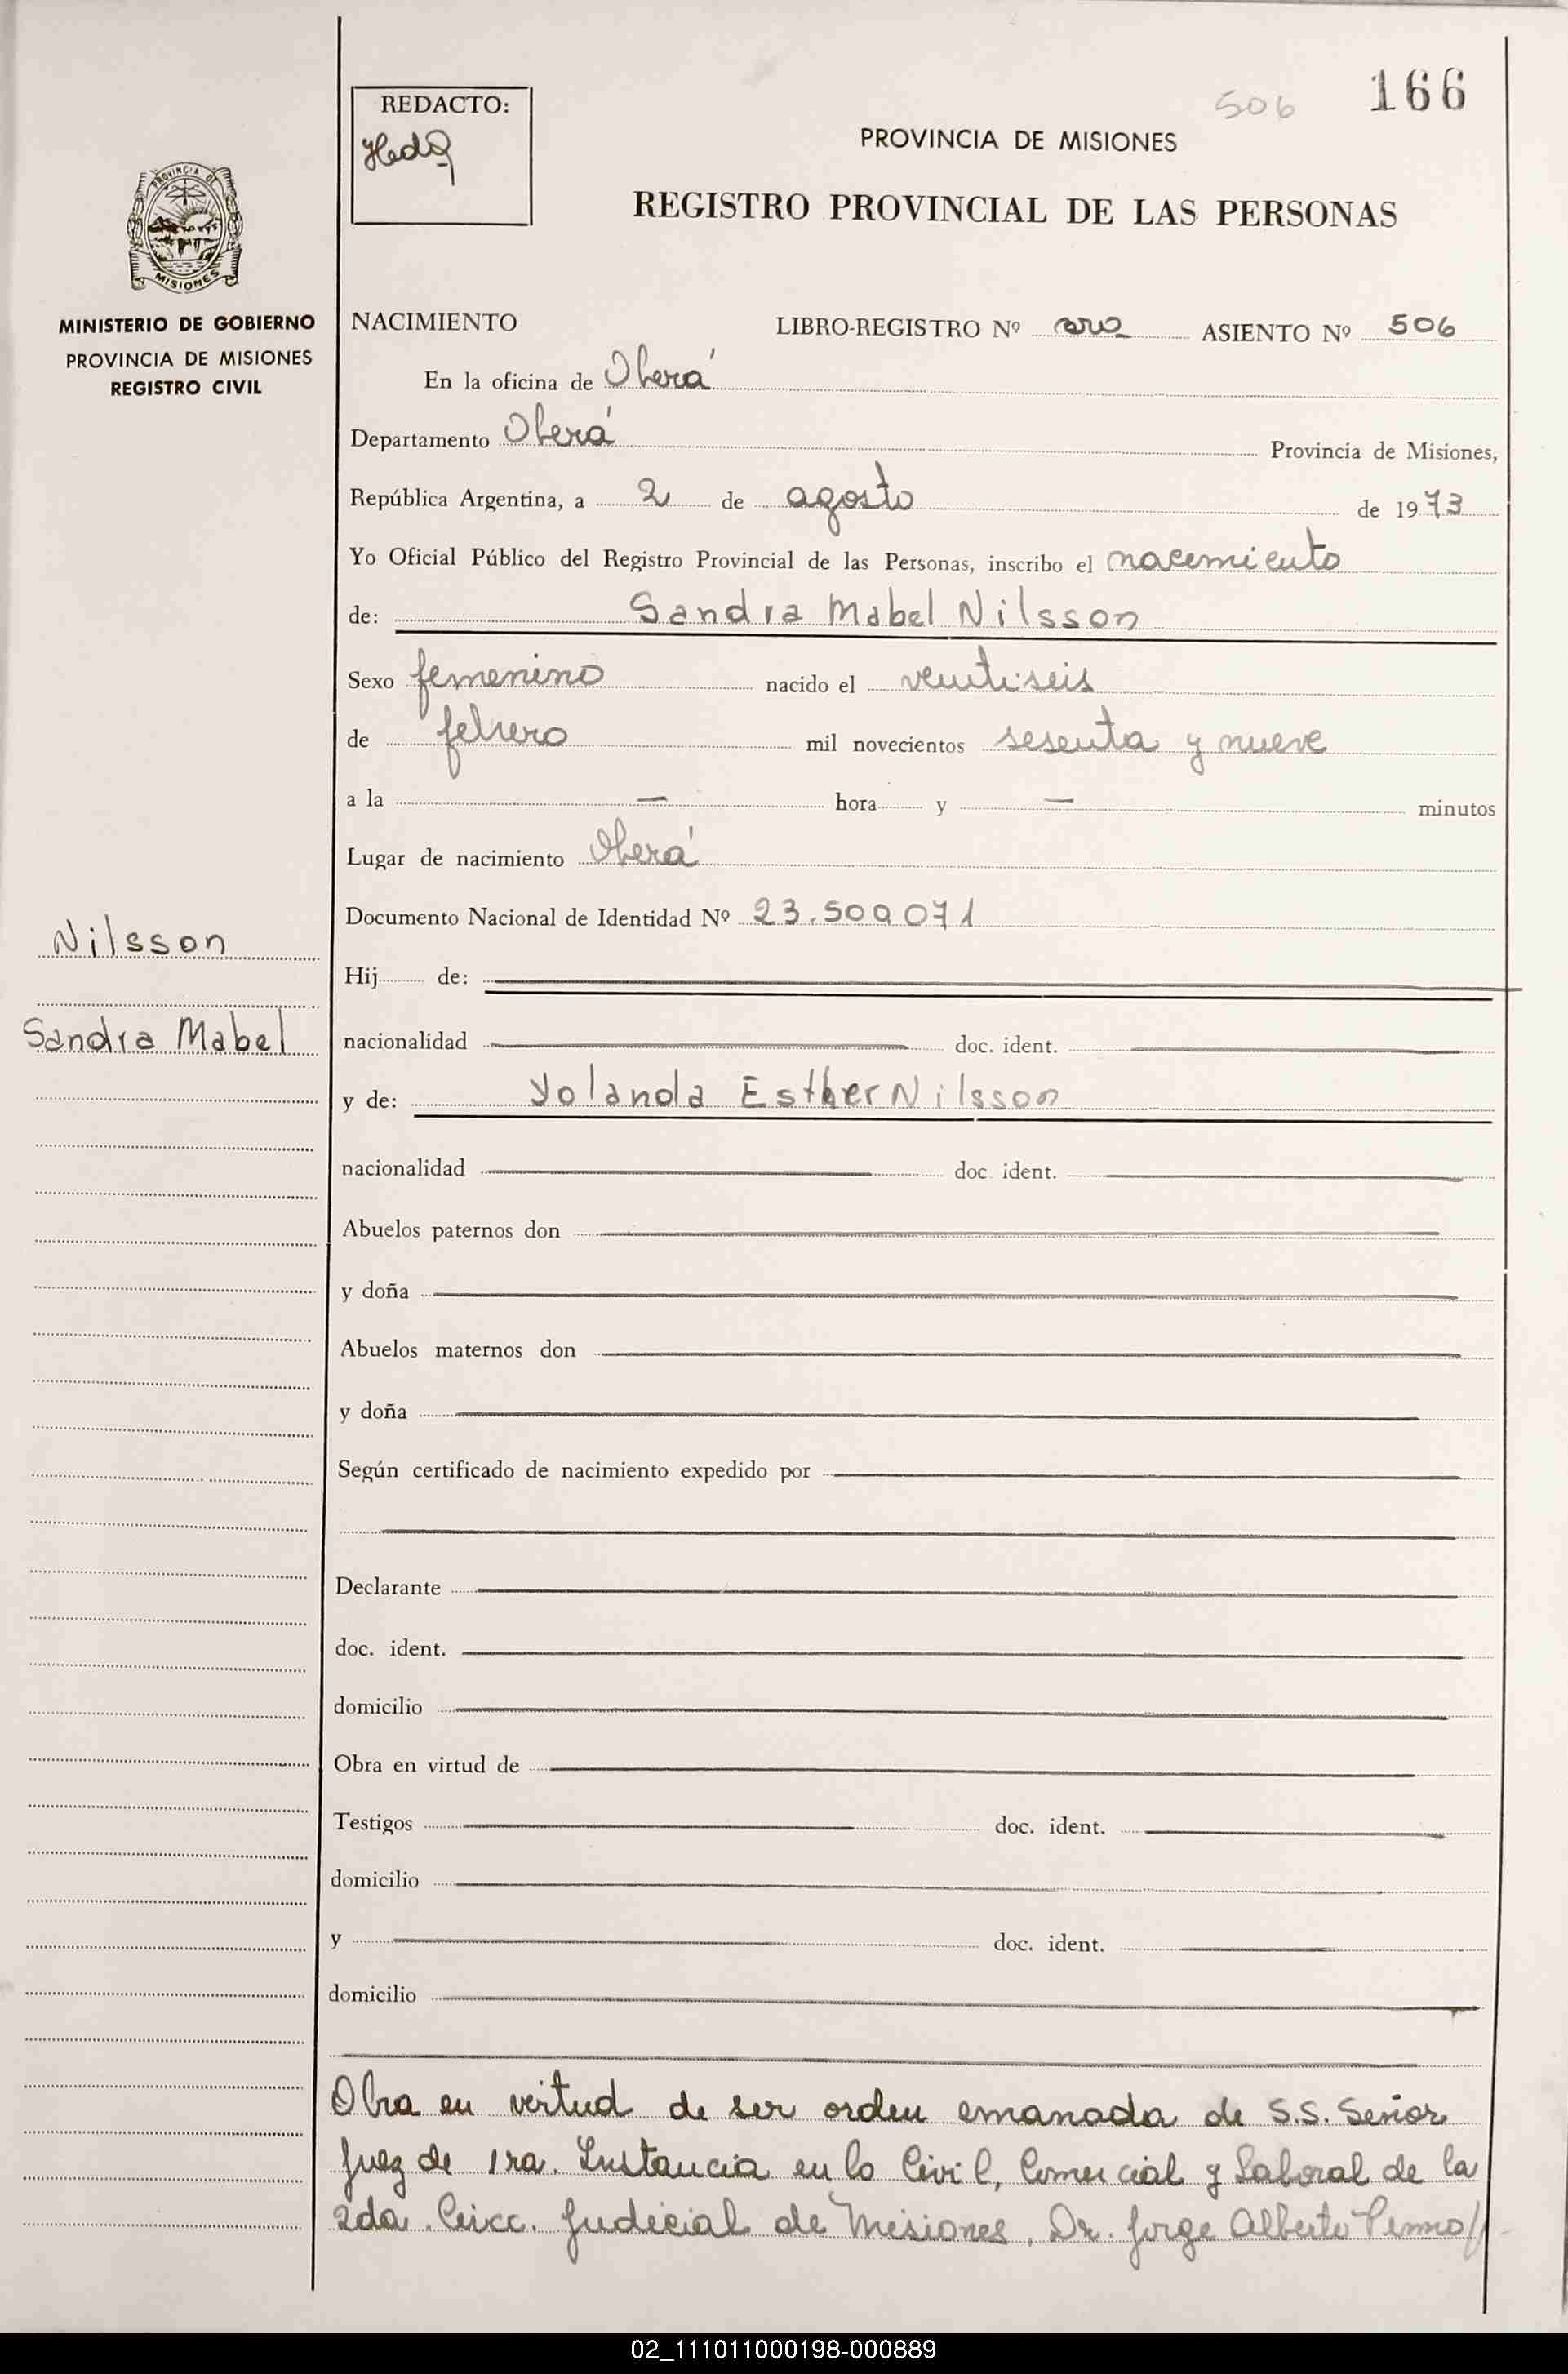 506 166
REDACTO:
PROVINCIA DE MISIONES
REGISTRO PROVINCIAL DE LAS PERSONAS
PROVINCIA DE MISIONES
MINISTERIO DE GOBIERNO
PROVINCIA DE MISIONES
REGISTRO CIVIL
NACIMIENTO LIBRO-REGISTRO Nº ASIENTO Nº 506
En la oficina de Oberá
Departamento Oberá Provincia de Misiones,
República Argentina, a 2 de agosto de 1973
Yo Oficial Público del Registro Provincial de las Personas, inscribo el nacemiento
de: Sandra Mabel Nilsson
Sexo femenino nacido el veintiseis
de febrero mil novecientos sesenta y nueve
a la — hora y — minutos
Lugar de nacimiento Oberá
Documento Nacional de Identidad Nº 23.500.071
Nilsson
Hij de:
Sandra Mabel
nacionalidad doc. ident.
y de: Yolanda Esther Nilsson
nacionalidad doc. ident.
Abuelos paternos don
y doña
Abuelos maternos don
y doña
Según certificado de nacimiento expedido por
Declarante
doc. ident.
domicilio
Obra en virtud de
Testigos doc. ident.
domicilio
y doc. ident.
domicilio
Obra en virtud de ser orden emanada de S.S. Señor
Juez de 1ra. Instancia en lo Civil, Comercial y Laboral de la
2da. Circc. Judicial de Misiones, Dr. Jorge Alberto
02_111011000198-000889